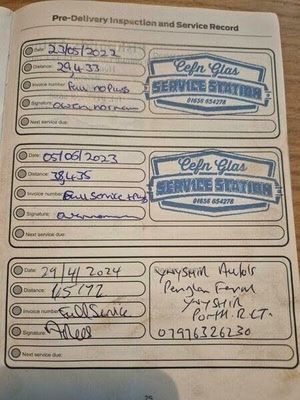 Pre-Delivery Inspection and Service Record
Date: 23/05/2022
Distance: 29,433
Invoice number: Full no plugs
Signature: owen norman
Next service due:
Cefn Glas
SERVICE STATION
01656 654278
Date: 05/05/2023
Distance: 38,435
Invoice number: Full Service +
Signature:
Next service due:
Cefn Glas
SERVICE STATION
01656 654278
Date: 29/4/2024
Distance: 45172
Invoice number: Full Service
Signature:
Next service due:
YNYSHIR Autos
Farm
YNYSHIR
Porth. R.C.T.
07976326230
25